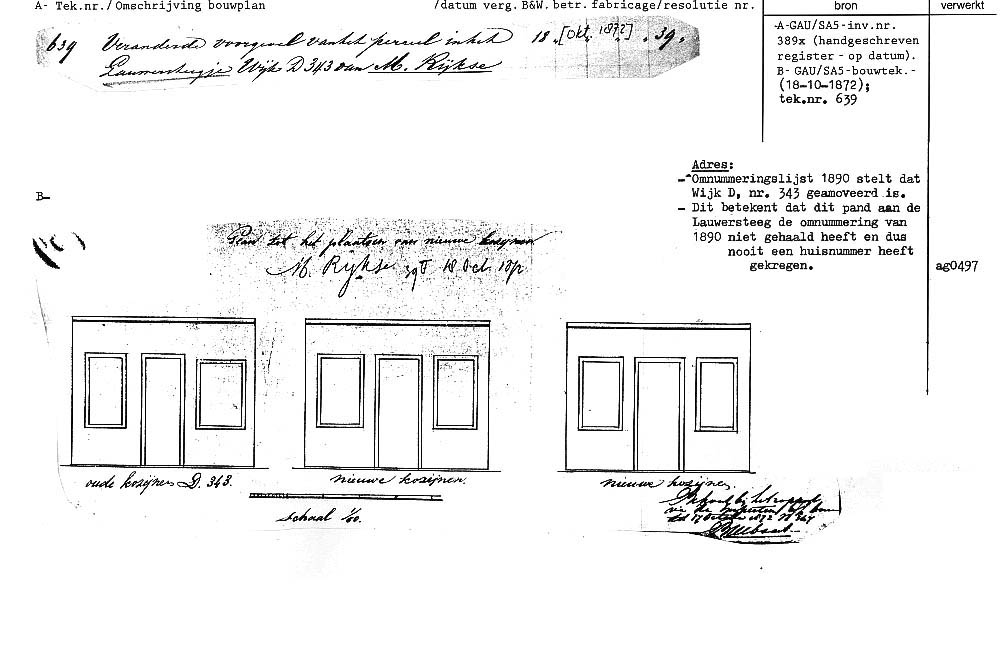 A- Tek.nr./Omschrijving bouwplan /datum verg. B&W. betr. fabricage/resolutie nr. bron verwerkt
639 Veranderde voorgevel van het perceel in het 18 [Okt. 1872] . 39.
Lauwersteegje Wijk D 343 van M. Rijkse
-A-GAU/SA5-inv.nr.
389x (handgeschreven
register - op datum).
B- GAU/SA5-bouwtek.-
(18-10-1872);
tek.nr. 639
Adres:
- Omnummeringslijst 1890 stelt dat
Wijk D, nr. 343 geamoveerd is.
- Dit betekent dat dit pand aan de
Lauwersteeg de omnummering van
1890 niet gehaald heeft en dus
nooit een huisnummer heeft
gekregen.
ag0497
B-
Plan tot het plaatsen van nieuwe kozijnen
M. Rijkse 39 18 Oct. 1872
oude kozijnen D. 343.
nieuwe kozijnen.
nieuwe kozijnen.
schaal 1/50.